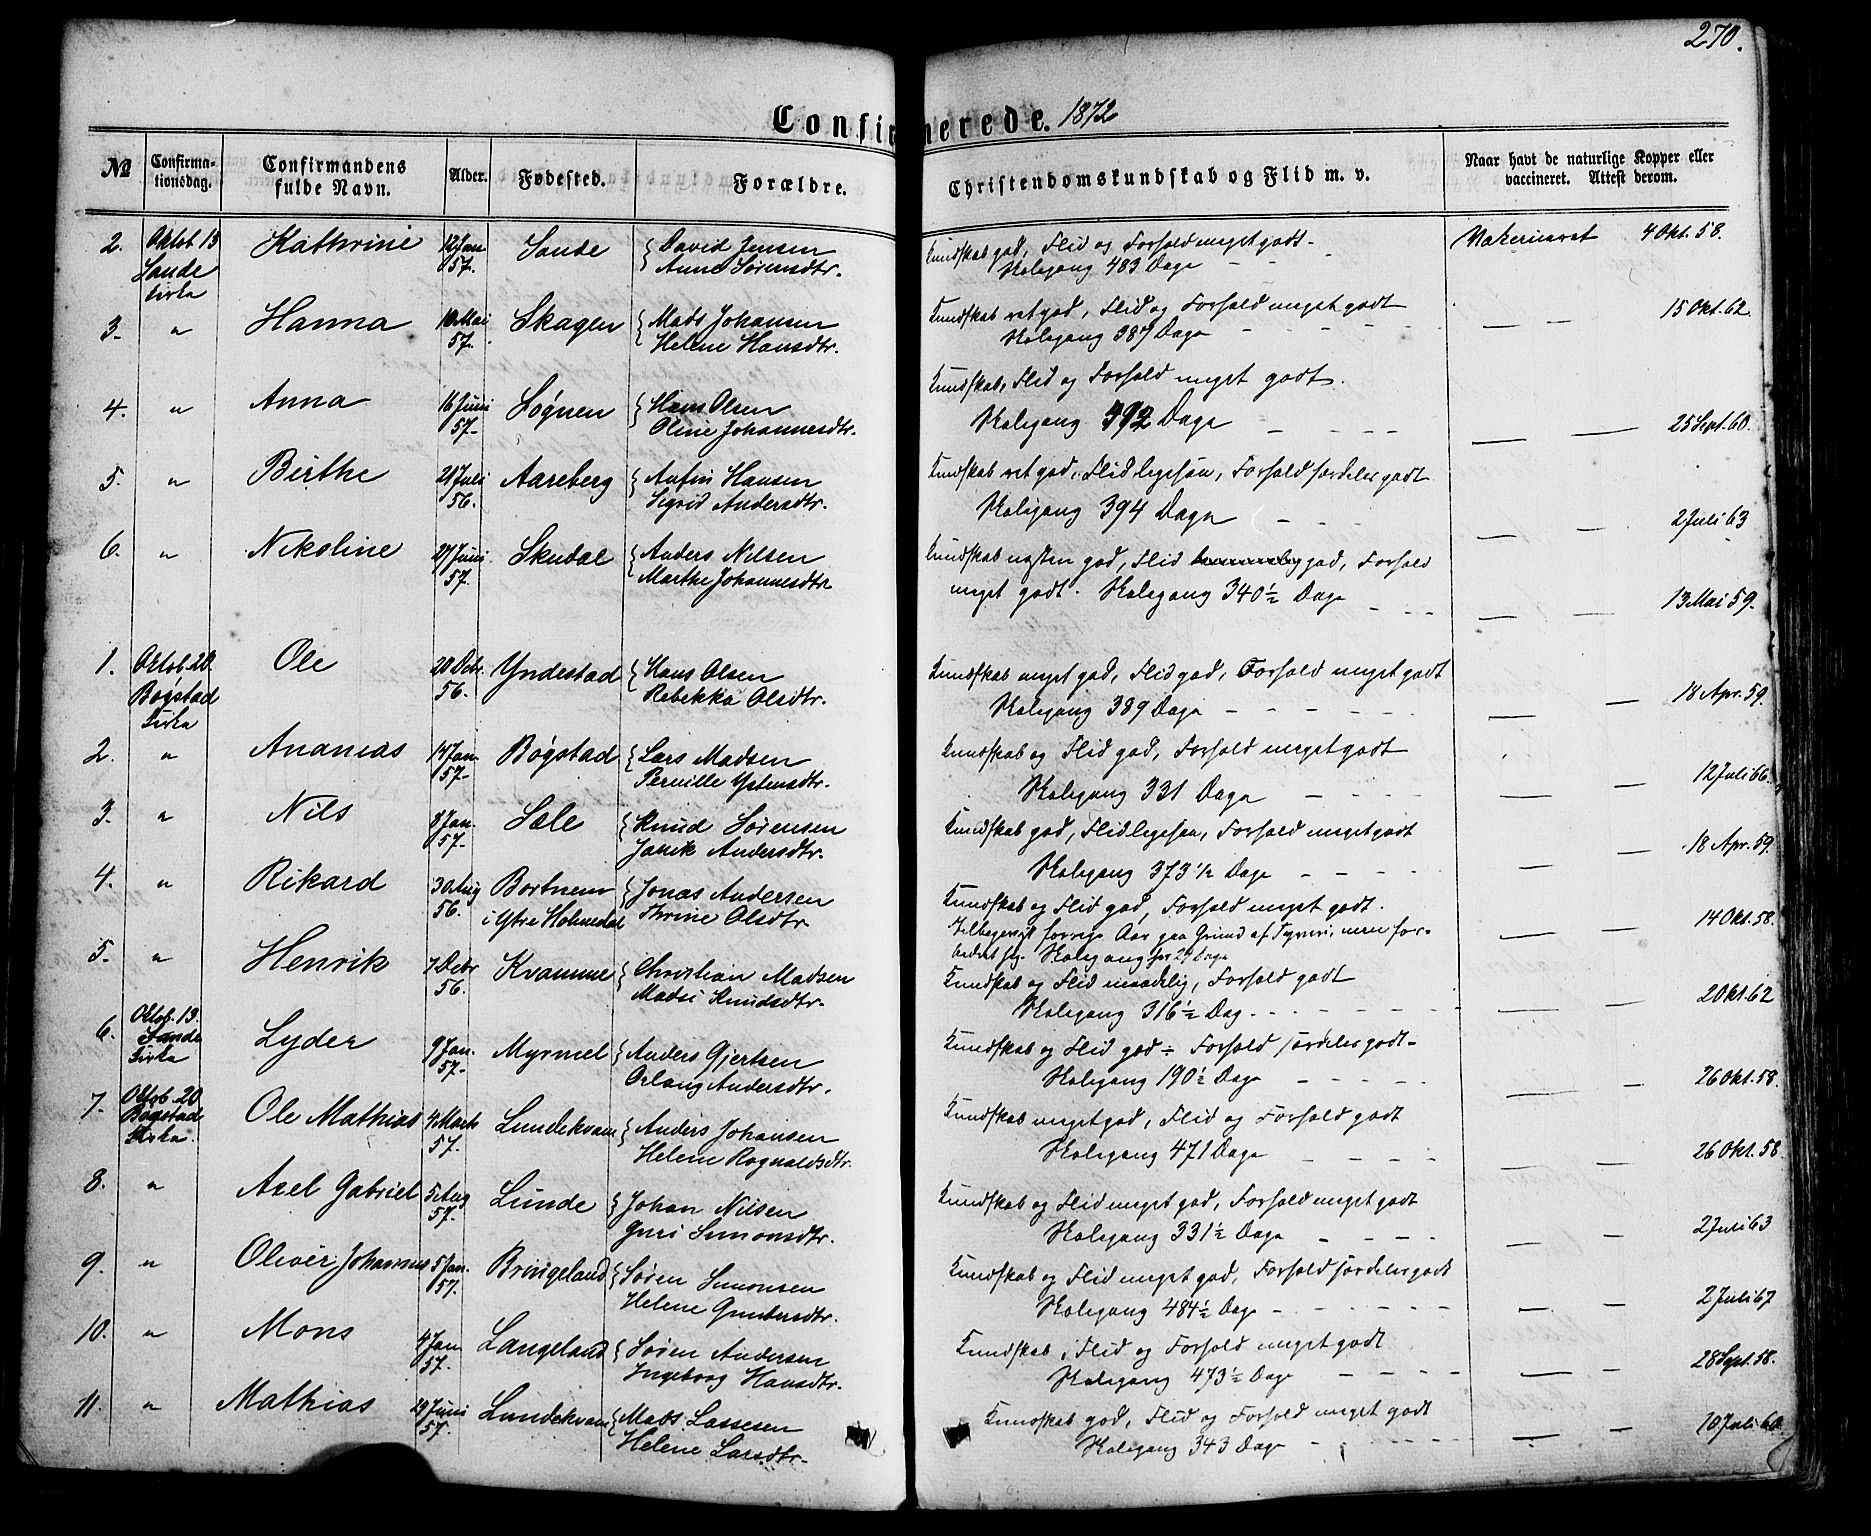 270.
Confirmerede. 1872
No
Confirmationsdag.
Confirmandens fulde Navn.
Alder.
Fødested.
Forældre.
Christendomskundskab og Flid m. v.
Naar havt de naturlige Kopper eller vaccineret. Attest derom.
2. Oktob 13 Sande Kirke Kathrine 12 Jan 57. Sande David Jensen Anne Sørensdtr. Kundskab god, Flid og Forhold meget godt. 4 Okt. 58.
Skolegang 483 Dage
3. " Hanna 57. Skagen Mads Johansen Helene Hansdtr. Kundskab ret god, Flid og Forhold meget godt 15 Okt. 62.
Skolegang 387 Dage
4. " Anna 16 Juni 57 Løgnen Hans Olsen Oline Johannesdtr. Kundskab, Flid og Forhold meget godt.
Skolegang 392 Dage 25 Sept. 60.
5. " Birthe 56. Aareberg Anfin Hansen Sigrid Andersdtr. Kundskab ret god, Flid ligesaa, Forhold særdeles godt
Skolegang 394 Dage 2 Juli 63
6. " Nikoline 27 Juni 57. Skudal Anders Nilsen Marthe Johannesdtr Kundskab næsten god, Flid god, Forhold
meget godt. Skolegang 340 1/2 Dage 13 Mai 59.
1. Oktob. 20. Bøgstad Kirke Ole 20 Debr. 56. Yndestad Hans Olsen Rebekka Olsdtr. Kundskab meget god, Flid god, Forhold meget godt
Skolegang 389 Dage 18 Apr. 59.
2. " Ananias 14 Jan. 57. Bøgstad Lars Madsen Pernille Ystensdtr. Kundskab og Flid god, Forhold meget godt
Skolegang 331 Dage 12 Juli 66.
3. " Nils 8 Jan. 57. Sæle Knud Sørensen Andersdtr. Kundskab god, Flid ligesaa, Forhold meget godt
Skolegang 373 1/2 Dage 18 Apr. 59.
4. " Rikard 30 Aug 56. Bortnem i Ytre Holmedal Jonas Andersen Thrine Olsdtr Kundskab og Flid god, Forhold meget godt.
Tilbagevist forrige Aar paa Grund af Tyveri, men forbedret sig. Skolegang 29 Dage 14 Okt. 58.
5. " Henrik 7 Debr 56. Kvamme Christian Madsen Madsi Knudsdtr. Kundskab og Flid maadelig, Forhold godt
Skolegang 316 1/2 Dag. 2 Okt. 62
6. Oktob. 13. Sande Kirke Lyder 9 Jan. 57. Myrmel Anders Gjertsen Andersdtr. Kundskab og Flid god Forhold særdeles godt
Skolegang 190 1/2 Dage 26 Okt. 58.
7. Oktob. 20 Bøgstad Kirke. Ole Mathias 4 Marts 57. Lundekvam Anders Johansen Helene Rognaldsdtr. Kundskab meget god, Flid og Forhold godt
Skolegang 471 Dage 26 Okt. 58
8. " Axel Gabriel 5 Aug 57. Lunde Johan Nilsen Guri Simonsdtr. Kundskab og Flid meget god, Forhold meget godt
Skolegang 331 1/2 Dage 2 Juli 63
9. " Oliver Johannes 5 Jan. 57. Bringeland Søren Simonsen Helene Gundersdtr. Kundskab og Flid meget god, Forhold særdeles godt
Skolegang 484 1/2 Dage 2 Juli 67
10. " Mons 4 Jan 57. Langeland Søren Andersen Ingeborg Hansdtr. Kundskab, Flid og Forhold meget godt
Skolegang 473 1/2 Dage 28 Sept. 58.
11. " Mathias 29 Juni 57. Lundekvam Mads Lassesen Helene Larsdtr. Kundskab god, Flid og Forhold meget godt
Skolegang 343 Dage 10 Juli 60.